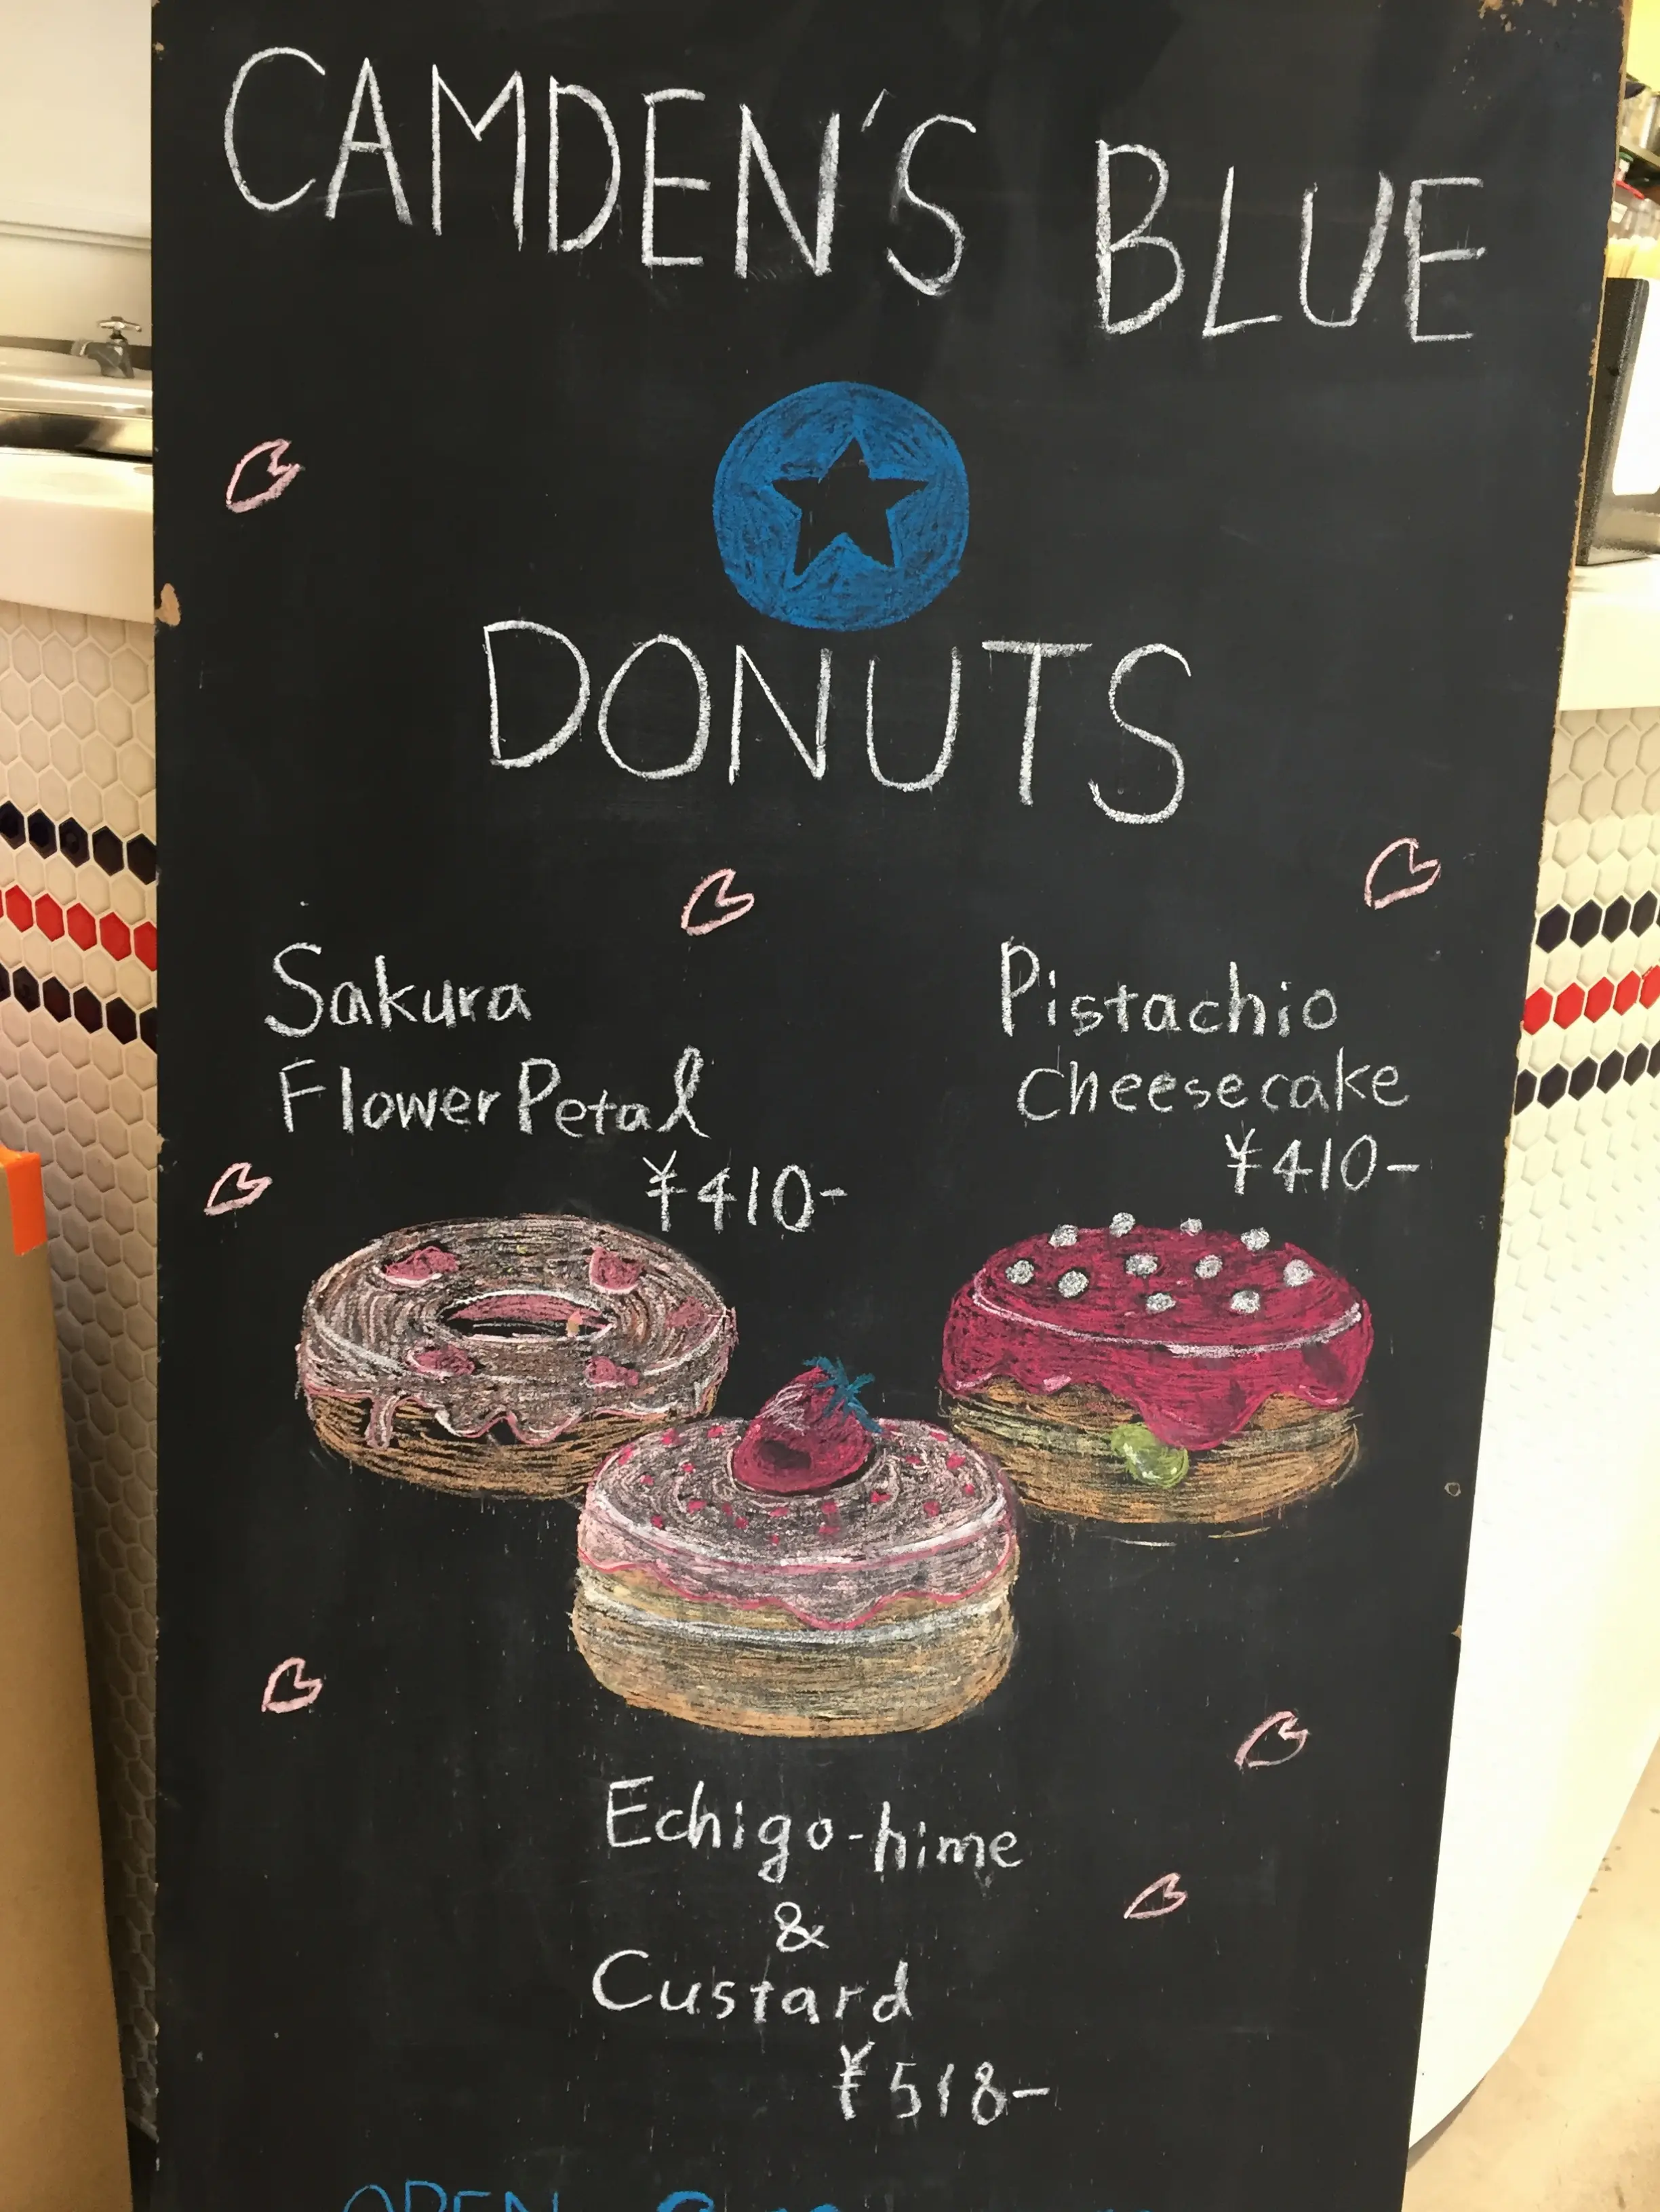 CAMDEN'S BLUE
DONUTS
Sakura
Flower Petal
¥410-
Pistachio
cheesecake
¥410-
Echigo-hime
&
Custard
¥518-
OPEN